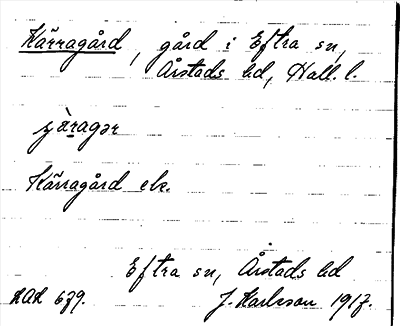 Kärragård, gård i Eftra sn,
Årstads hd, Hall. l.
ɟä̀ragər
Kärragård elr.
Eftra sn, Årstads hd
J. Karlsson 1917.